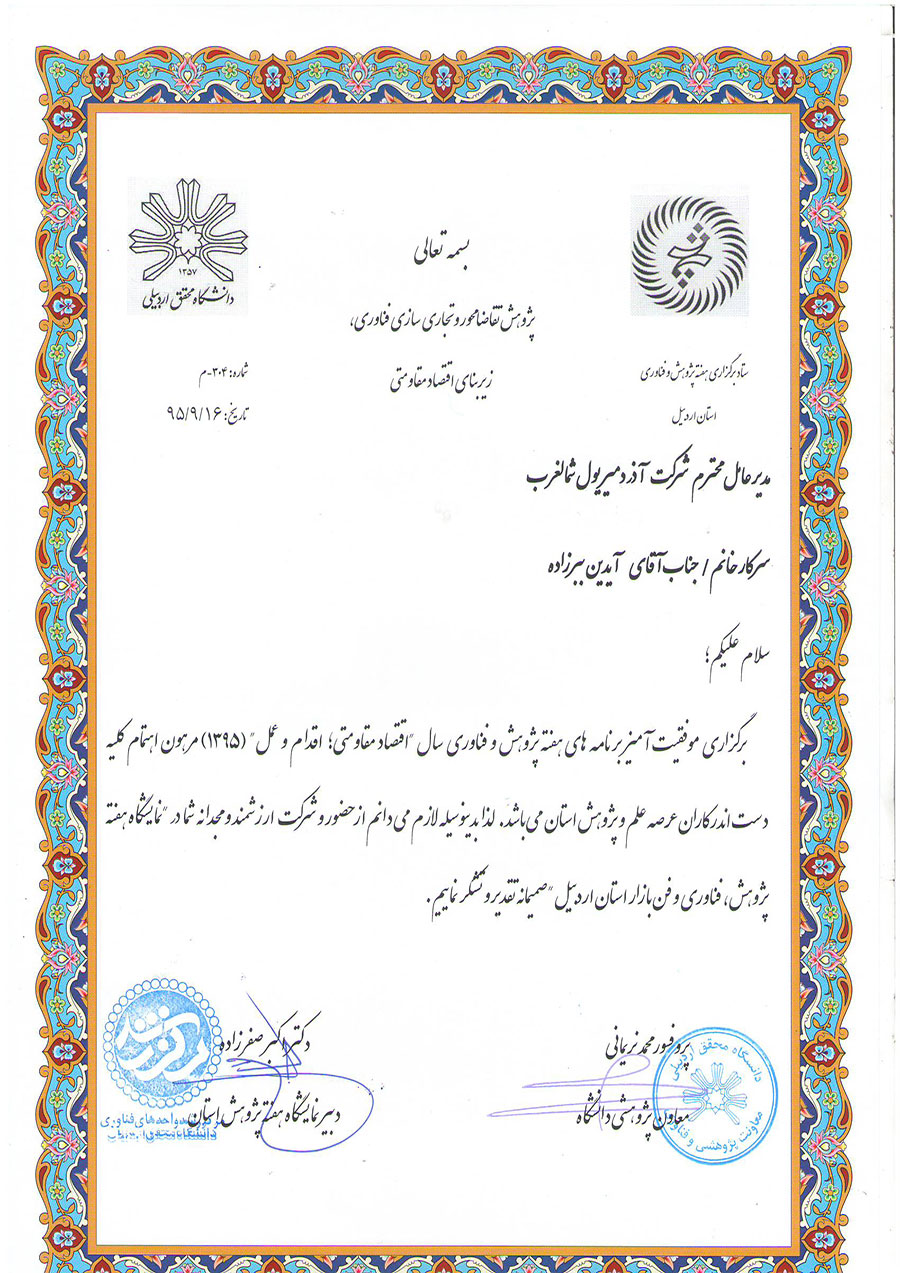 بسمه تعالی
۱۳۵۷
دانشگاه محقق اردبیلی
پژوهش
پژوهش تقاضامحور و تجاری سازی فناوری،
زیربنای اقتصاد مقاومتی
ستاد برگزاری هفته پژوهش و فناوری
استان اردبیل
شماره: ۳۰۴-م
تاریخ: ۹۵/۹/۱۶
مدیرعامل محترم شرکت آذر دمیر یول شمالغرب
سرکار خانم / جناب آقای آیدین ببرزاده
سلام علیکم؛
برگزاری موفقیت آمیز برنامه های هفته پژوهش و فناوری سال "اقتصاد مقاومتی؛ اقدام و عمل" (۱۳۹۵) مرهون اهتمام کلیه
دست اندرکاران عرصه علم و پژوهش استان می باشد. لذا بدینوسیله لازم می دانم از حضور و شرکت ارزشمند و مجدانه شما در "نمایشگاه هفته
پژوهش، فناوری و فن بازار استان اردبیل" صمیمانه تقدیر و تشکر نماییم.
پروفسور محمد نریمانی
معاون پژوهشی دانشگاه
دانشگاه محقق اردبیلی
معاونت پژوهشی و فناوری
دکتر اکبر صفرزاده
دبیر نمایشگاه هفته پژوهش استان
مرکز رشد
واحدهای فناوری
دانشگاه محقق اردبیلی